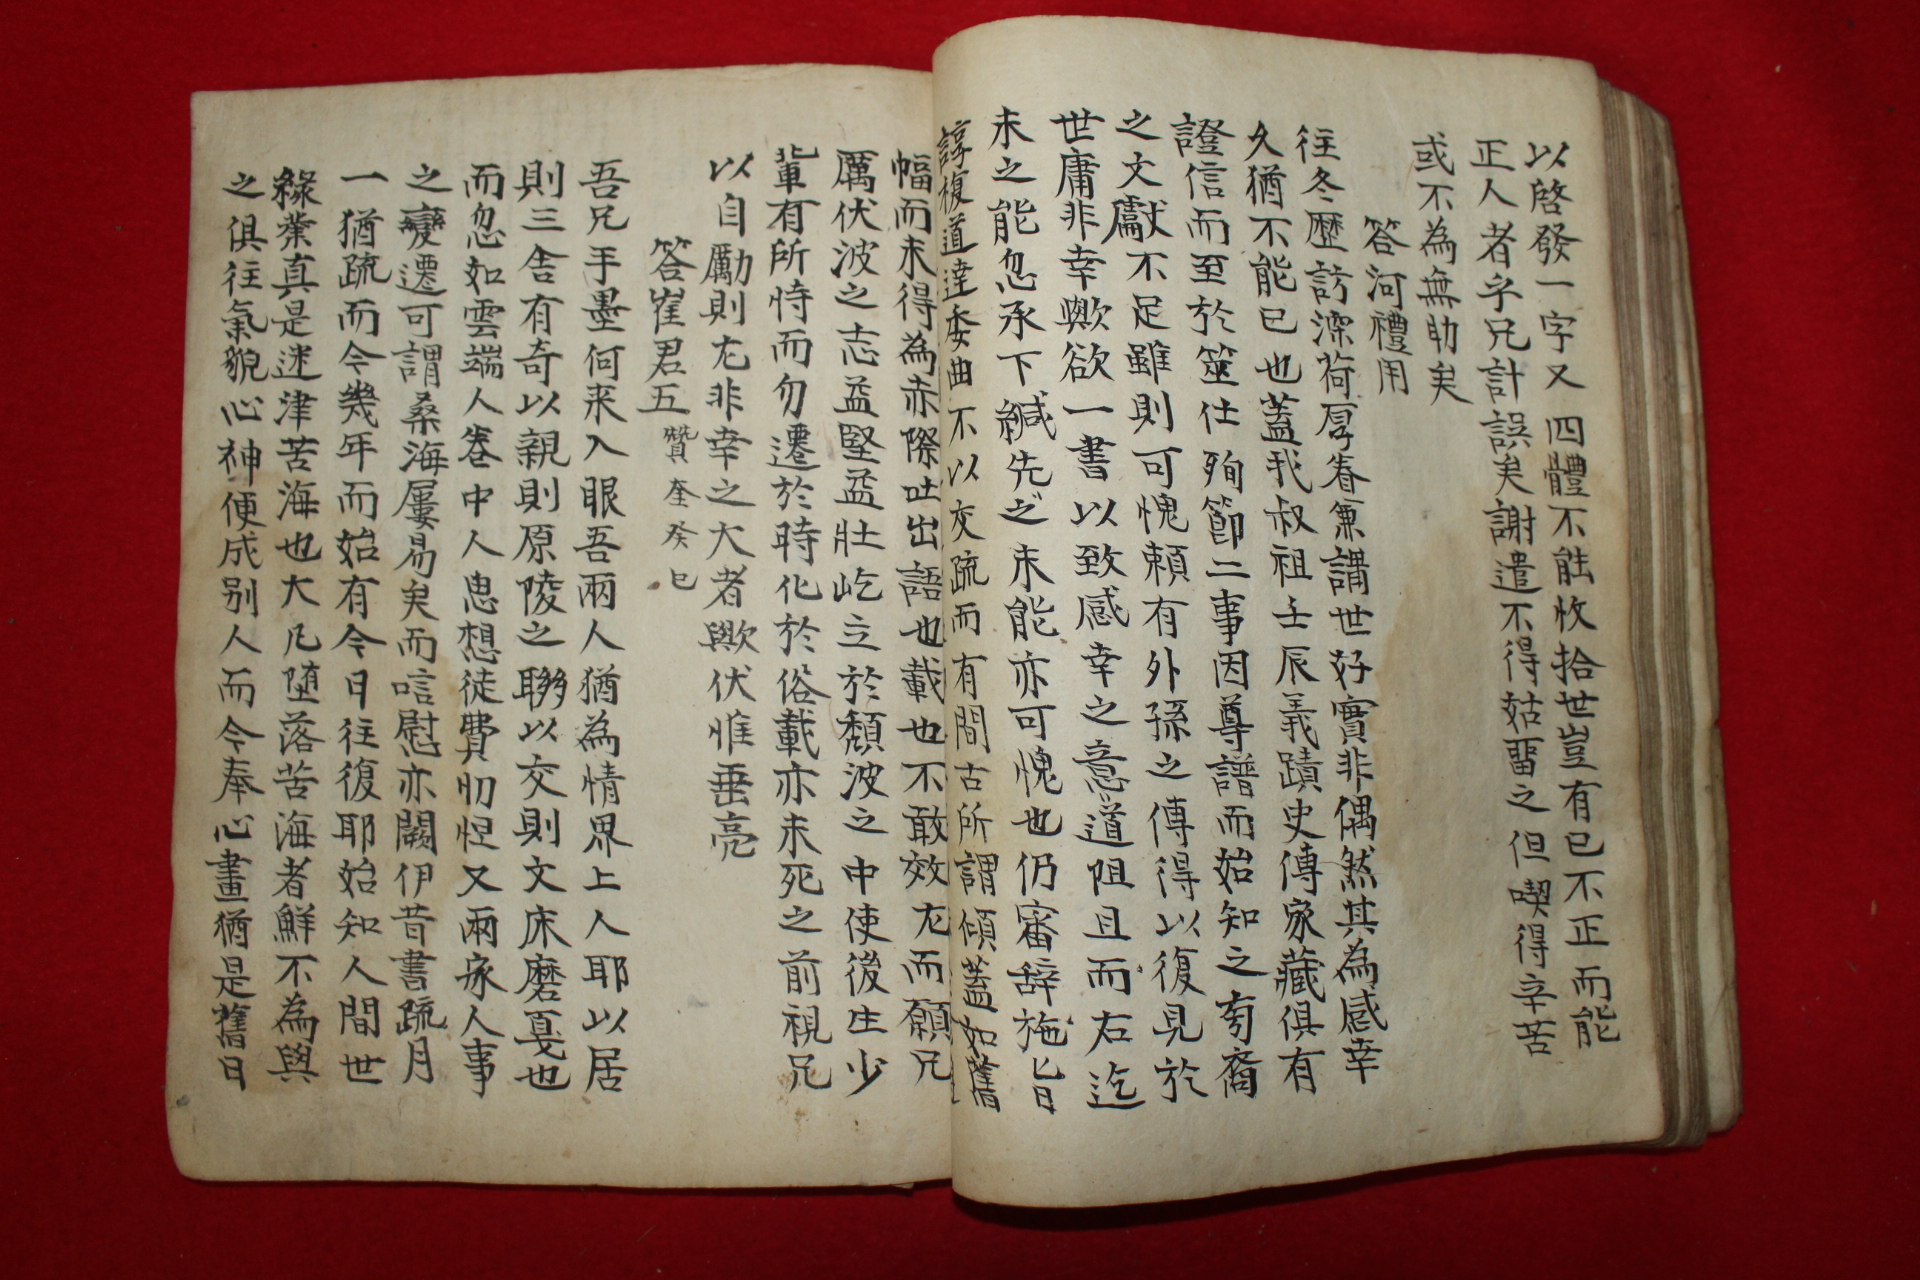 以啓發一字又四體不能收拾世豈有已不正而能
正人者乎兄計誤矣謝遣不得姑畱之但喫得辛苦
或不為無助矣
答河禮用
往冬歷訪深荷厚眷兼講世好實非偶然其為感幸
久猶不能已也蓋我叔祖壬辰義蹟史傳家藏俱有
證信而至於筮仕殉節二事因尊譜而始知之旁裔
之文獻不足雖則可愧賴有外孫之傳得以復見於
世庸非幸歟欲一書以致感幸之意道阻且而右迄
未之能忽承下緘先之未能亦可愧也仍審辞施匕旨
諄複道達委曲不以交疏而有間古所謂傾蓋如舊
幅而未得為赤際吐出語也載也不敢效尤而願兄
厲伏波之志益堅益壯屹立於頹波之中使後生少
軰有所恃而勿遷於時化於俗載亦未死之前視兄
以自勵則尤非幸之大者歟伏惟垂亮
答崔君五 贊奎癸巳
吾兄手墨何来入眼吾兩人猶為情界上人耶以居
則三舍有奇以親則原陵之聯以交則文床磨戛也
而忽如雲端人卷中人思想徒費忉怛又兩家人事
之變遷可謂桑海屢易矣而唁慰亦闕伊昔書疏月
一猶疏而今幾年而始有今日往復耶始知人間世
緣業真是迷津苦海也大凡墮落苦海者鮮不為與
之俱往氣貌心神便成别人而今奉心畫猶是舊日